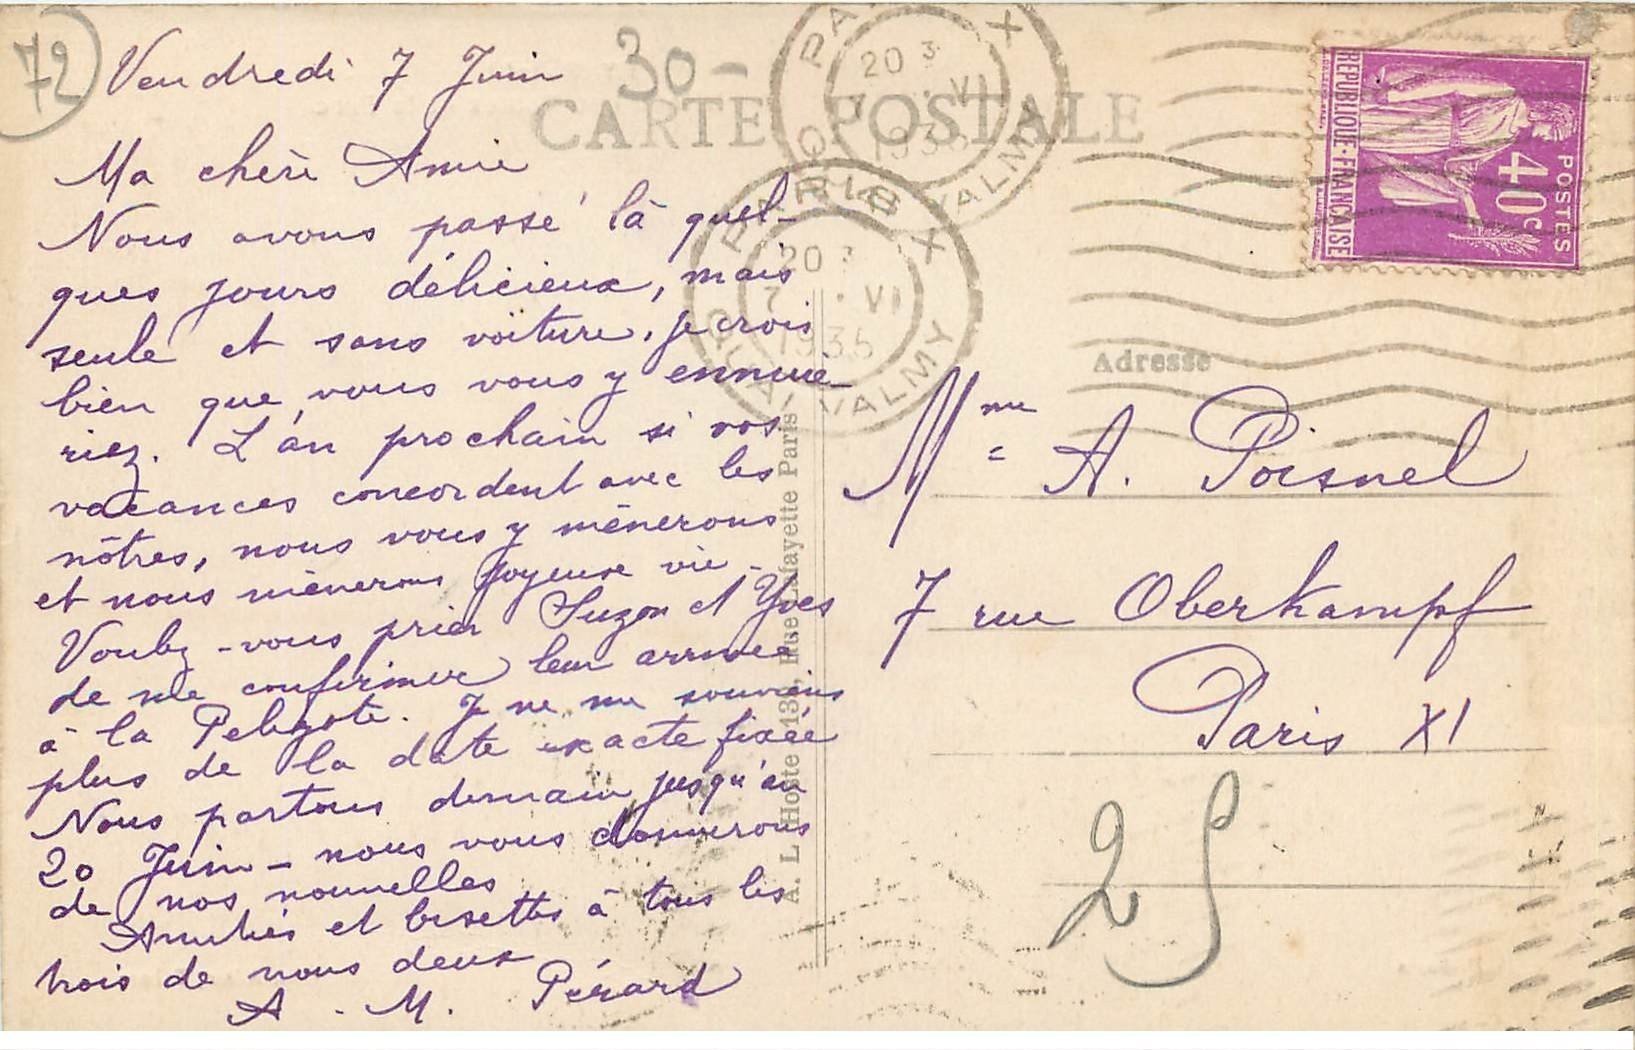 72
30-
Vendredi 7 Juin
CARTE POSTALE
Ma chère Amie
Nous avons passé là quel-
ques jours délicieux, mais
seule et sans voiture, je crois
bien que vous vous y ennuie-
riez. L'an prochain si vos
vacances concordent avec les
nôtres, nous vous y mènerons
et nous mènerons joyeuse vie -
Voulez-vous prier Suzon et Yves
de me confirmer leur arrivée
à la . Je ne me souviens
plus de la date exacte fixée
Nous partons demain jusqu'au
20 Juin - nous vous donnerons
de nos nouvelles
Amitiés et bisettes à tous les
trois de nous deux
A. M. Pérard
PARIS X
20 3
7 VI
1935
QUAI VALMY
PARIS X
20 3
7 VI
1935
QUAI VALMY
REPUBLIQUE-FRANÇAISE
POSTES
40c
Adresse
Mme A. Poisnel
7 rue Oberkampf
Paris XI
25
A. L'Hoste 13, Rue Lafayette Paris